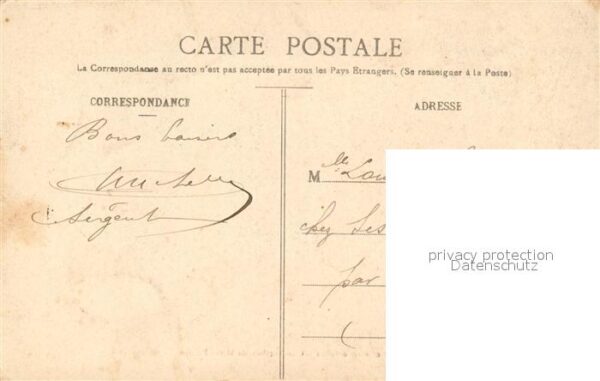 CARTE POSTALE
La Correspondance au recto n'est pas acceptée par tous les Pays Etrangers. (Se renseigner à la Poste)
CORRESPONDANCE
ADRESSE
Bons baisers
Sergent
Mlle Lou
chez Ses
par
privacy protection
Datenschutz